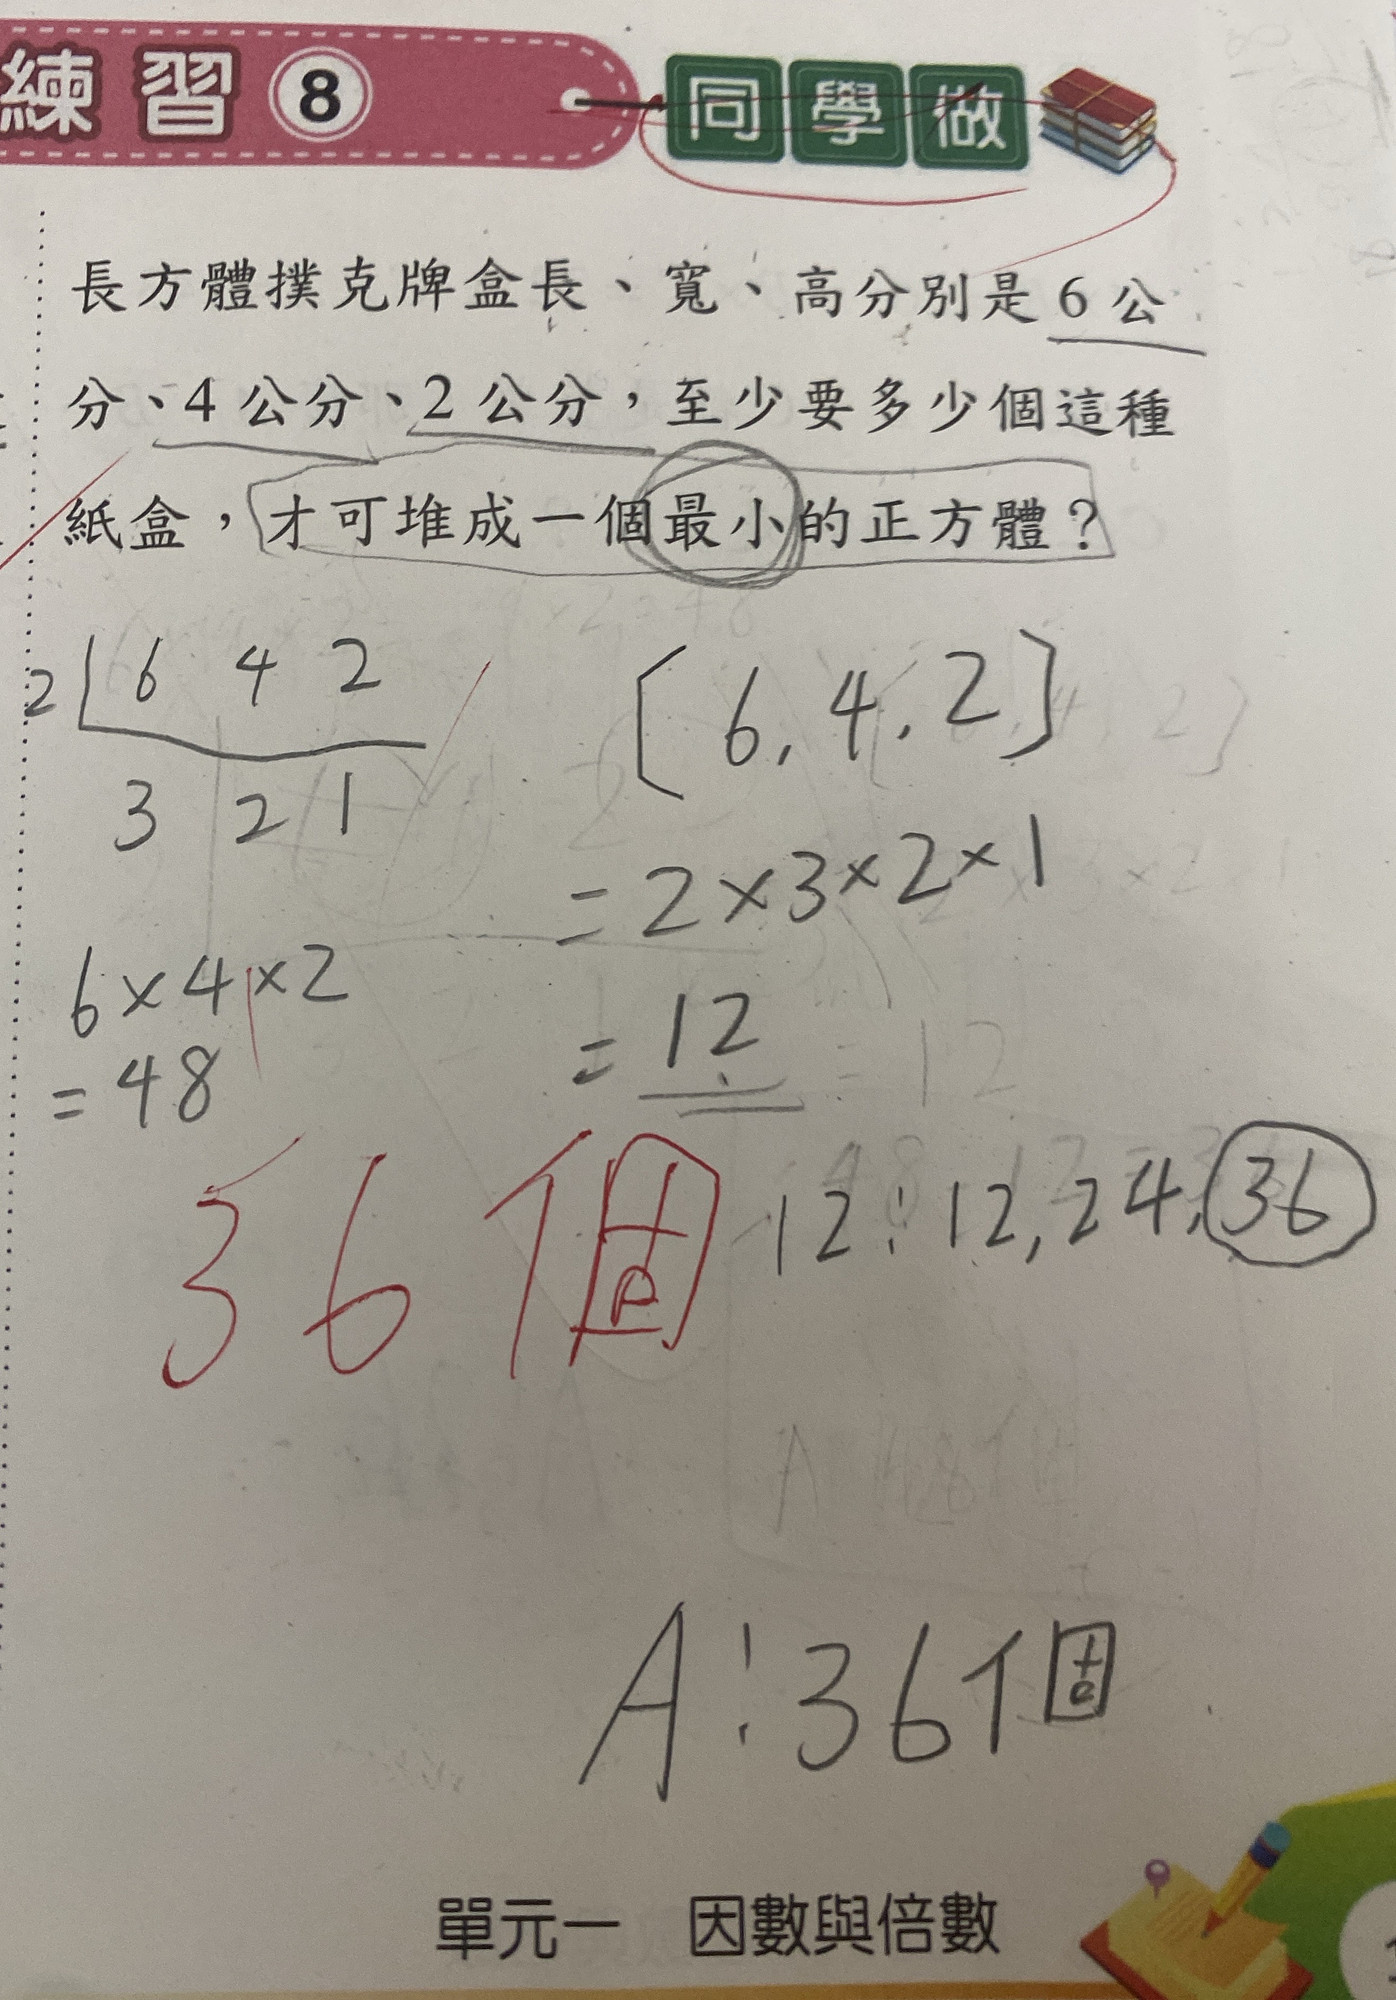 練習8 同學做
長方體撲克牌盒長、寬、高分別是6公
分、4公分、2公分，至少要多少個這種
紙盒，才可堆成一個最小的正方體？
2 6 4 2
3 2 1
[6,4,2]
=2×3×2×1
=12
6×4×2
=48
36個
12:12,24,36
A:36個
單元一 因數與倍數